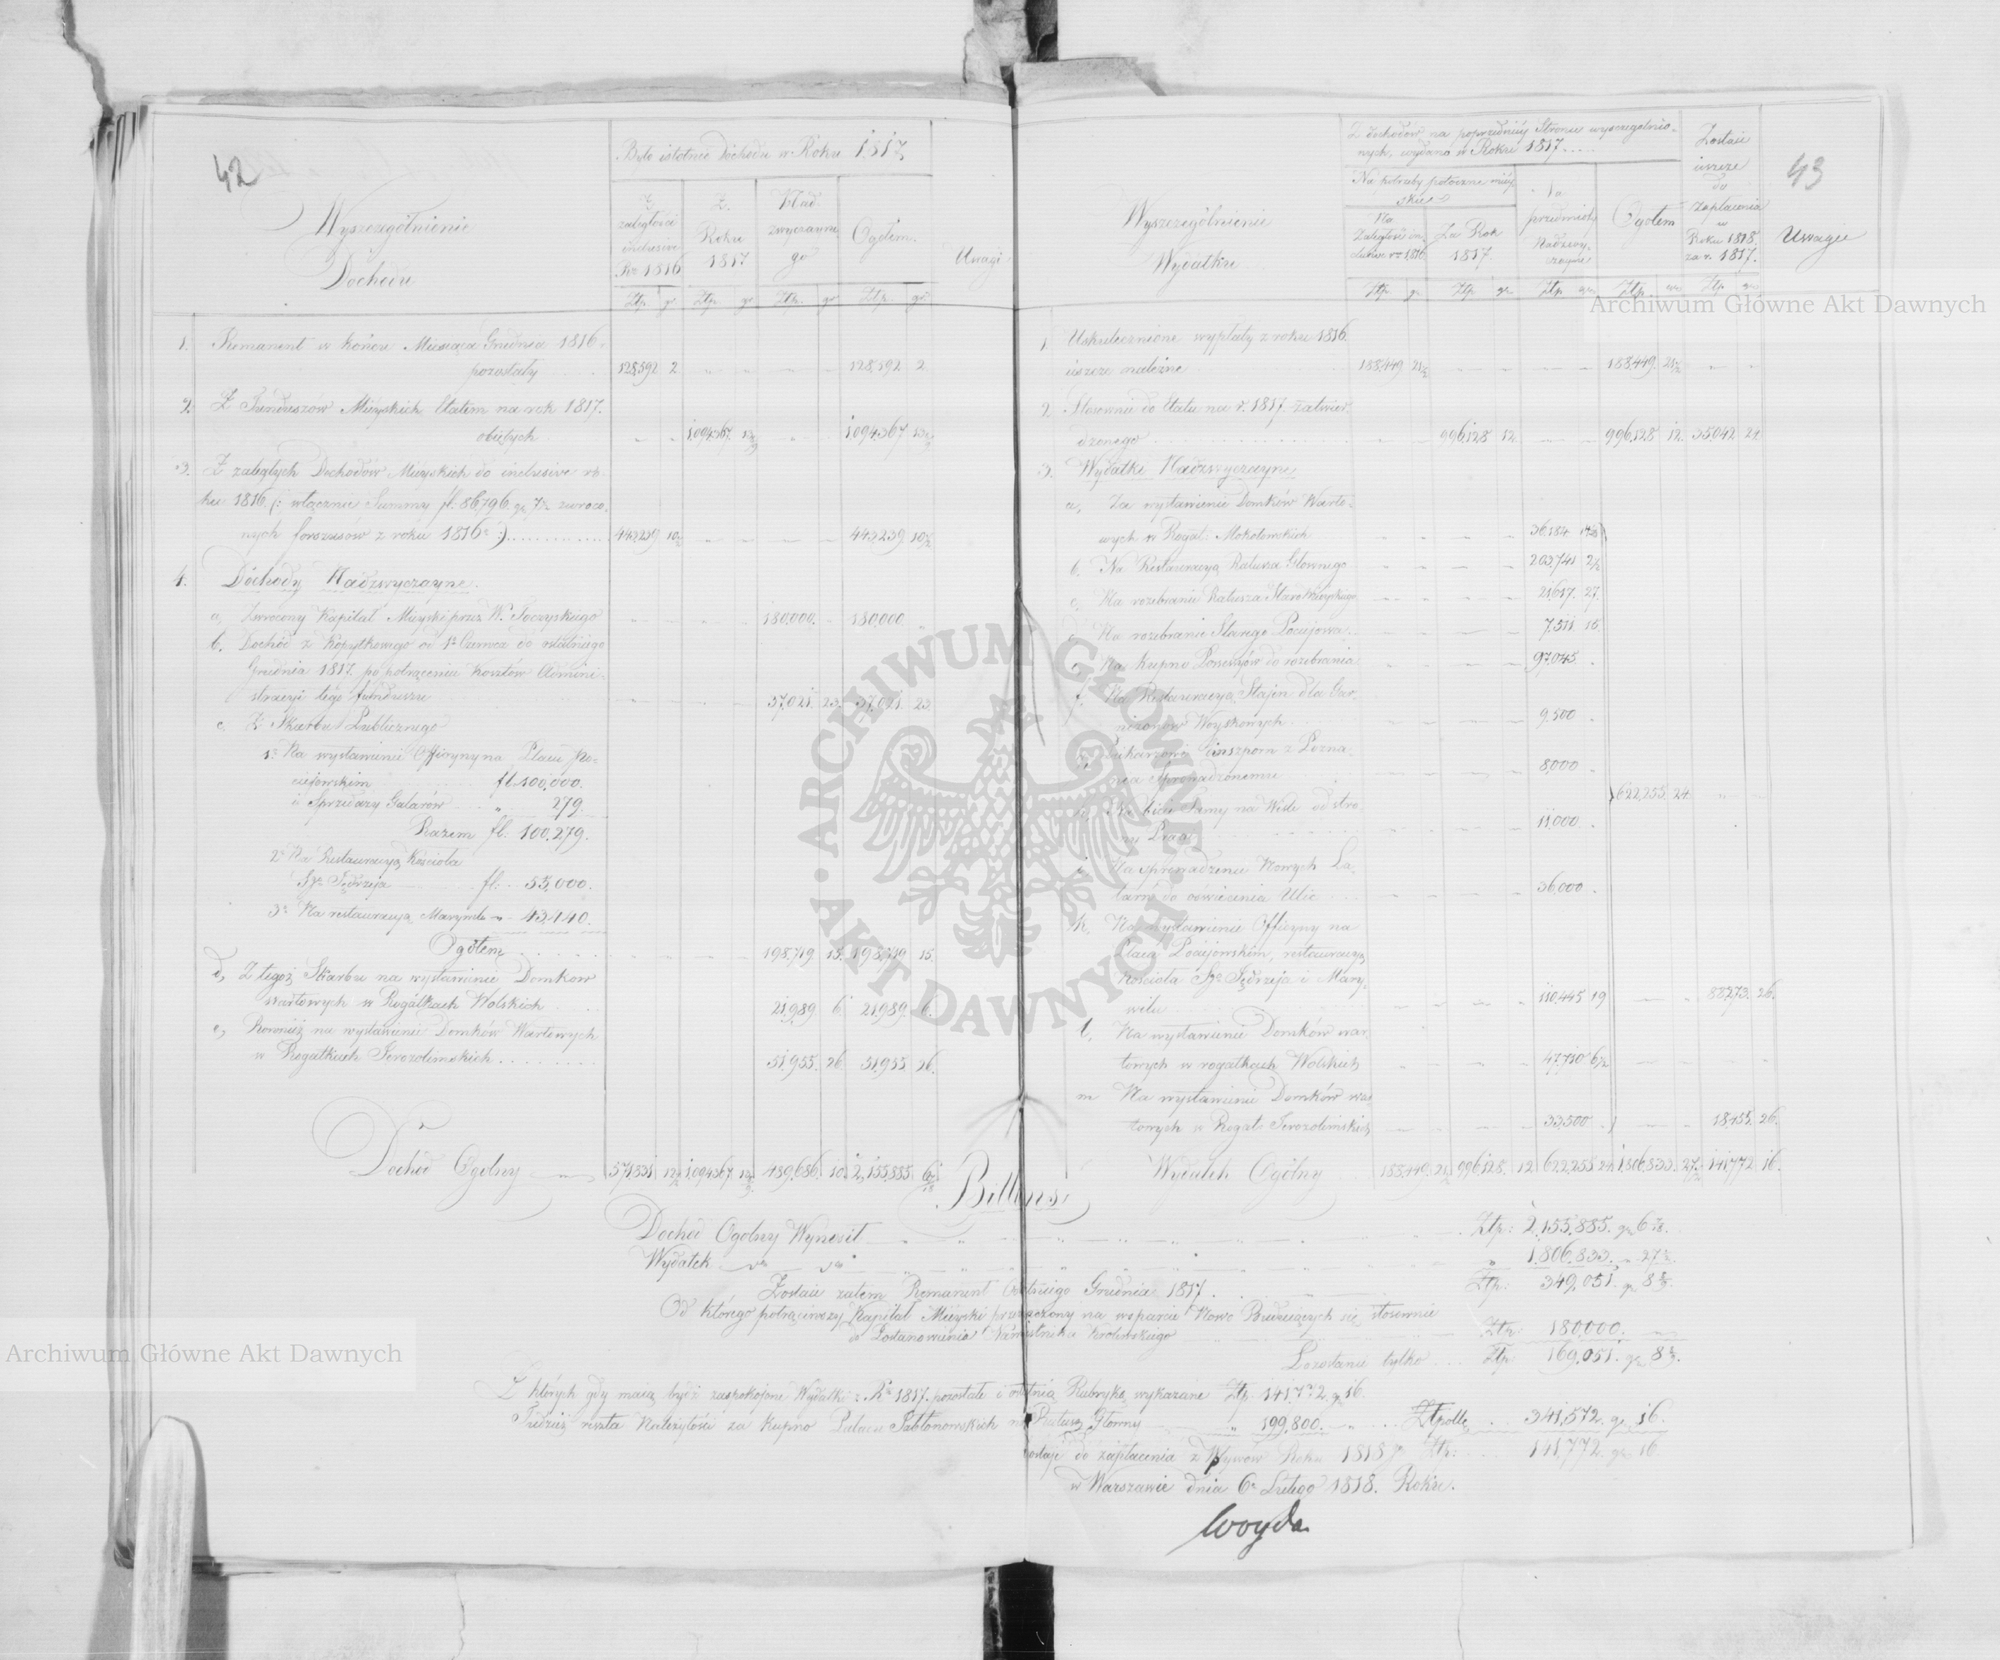 42
Wyszczegolnienie
Dochodu
Było istotnie Dochodu w Roku 1817
Z zaległości inclusive Ru 1816
Z Roku 1817
Nad zwyczayne go
Ogółem.
Uwagi
Złp. gr. Złp. gr Złp. gr Złp. gr.
1. Remanent w końcu Miesiąca Grudnia 1816.
pozostały 128,592 2 128,592 2
2. Z Funduszów Mieyskich Etatem na rok 1817.
obiętych 1,094,367. 1,094,367
3. Z zaległych Dochodów Mieyskich do inclusive ro-
ku 1816 (: włącznie Summy fl. 86,796. gr 7½ zwroco-
nych forszusów z roku 1816 :) 442,239 10½ 442,239 10½
4. Dochody Nadzwyczayne.
a, Zwrocony Kapitał Mieyski przez W. Toczyskiego 180,000. 180,000
b. Dochód z Kopytkowego od 1 Czerwca do ostatniego
Grudnia 1817. po potrąceniu Kosztów Admini-
stracyi tego funduszu 37,021. 23. 37,021. 23
c, Z Skarbu Publicznego
1: Na wystawienie Officyny na Placu Po-
ciejowskim fl. 100,000.
i Sprzedaży Galarów „ 279.
Razem fl: 100,279.
2: Na Restauracyą Kościoła
Sgo Jędrzeja fl: 55,000.
3: Na restauracyą Marywilu 43,440.
Ogółem 198,719 15. 198,719 15.
d, Z tegoż Skarbu na wystawienie Domkow
wartowych w Rogatkach Wolskich 21,989 6 21,989. 6.
e, Rownież na wystawienie Domków Wartowych
w Rogatkach Jerozolimskich 51,955. 26. 51,955 26.
Dochod Ogolny 571,531 12½ 1,094,367 489,686. 10 2,155,885. 6
43
Wyszczególnienie
Wydatku
Z dochodów na poprzedniey Stronie wyszczegolnio-
nych, wydano w Roku 1817
Na potrzeby potoczne miey
skie
Na Zaległość in clusive ro 1,816
Za Rok 1817.
Na przedmioty Nadzwy- czayne
Ogołem
Zostaie ieszcze do Zapłacenia w Roku 1818. za r. 1817.
Uwagi
Złp. gr. Złp. gr. Złp. gr. Złp. gr. Złp. gr.
1. Uskutecznione wypłaty z roku 1816.
ieszcze należne 188,449 21½ 188,449. 21½
2. Stosownie do Etatu na r. 1817. zatwier-
dzonego 996,128 12 996,128 12. 35,042 24
3. Wydatki Nadzwyczayne
a, Za wystawienie Domków Warto-
wych w Rogat: Mokotowskich 36,184
b. Na Restauracyą Ratusza Głownego 203,741 2½
c, Na rozebranie Ratusza Staro Mieyskiego 21,617. 27.
Na rozebranie Starego Pociejowa 7,511 15.
Na kupno Possessyów do rozebrania 97,045.
f. Na Restauracyą Stajen dla Gar-
nizonow Woyskowych 9,500
Lekarzowi Einszporn z Pozna-
nia Sprowadzonemu 8,000
Na bicie Tamy na Wiśle od stro-
ny Pragi 11,000 622,255. 24.
i. Na sprowadzenie Nowych La-
tarń do oświecenia Ulic 36,000
k, Na wystawienie Officyny na
Placu Pociejowskim, restauracyą
Kościoła Sgo Jędrzeja i Mary-
wilu 110,445 19 88,273. 26.
l, Na wystawienie Domków war-
towych w rogatkach Wolskich 47,710 6½
m Na wystawienie Domków war-
towych w Rogat: Jerozolimskich 33,500 18,455. 26.
Wydatek Ogólny 188,449. 21½ 996,128. 12 622,255 24 1,806,833. 27½ 141,772 16.
Billans
Dochod Ogolny Wynosił Złp: 2,155,885. gr 6
Wydatek „ 1,806,833. „ 27½.
Zostaie zatem Remanent Ostatniego Grudnia 1817. Złp: 349,051. gr 8
Od którego potrąciwszy Kapitał Mieyski przeznaczony na wsparcie Nowo Buduiących się, stosownie
do Postanowienia Namiestnika Krolewskiego Złp: 180,000.
Pozostanie tylko Złp: 169,051. gr 8
Z których gdy maią bydź zaspokojone Wydatki z Rku 1817. pozostałe i ostatnią Rubryką wykazane Złp 141,772. gr 16.
Tudzież reszta Należytości za kupno Pałacu Jabłonowskich na Ratusz Głowny „ 199,800. Złpolk. 341,572. gr 16.
do zapłacenia z Roku 1818 Złp: 141,772. gr 16
w Warszawie dnia 6. Lutego 1818. Roku.
Woyda
Archiwum Główne Akt Dawnych
Archiwum Główne Akt Dawnych
ARCHIWUM GŁÓWNE AKT DAWNYCH